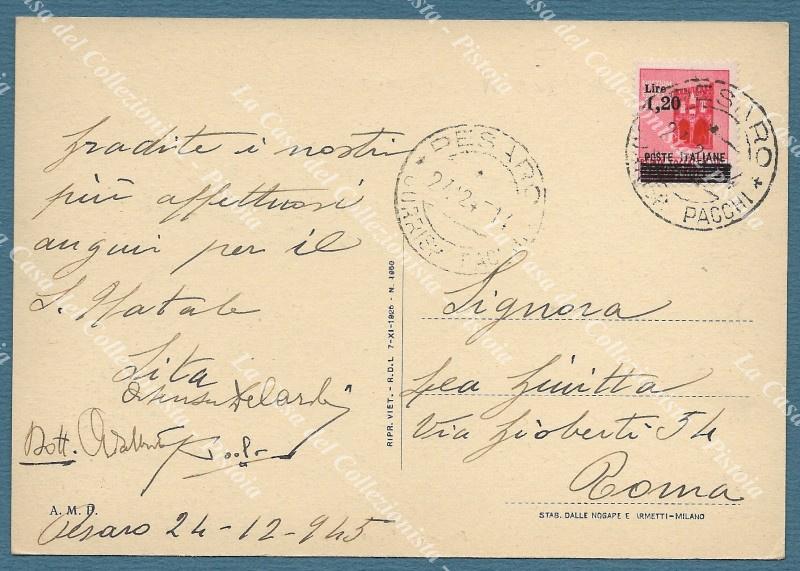 gradite i nostri
più affettuosi
auguri per il
S. Natale
Lita
Dott.
A. M. D.
Pesaro 24-12-945
RIPR. VIET. - R.D.L. 7-XI-1925 - N. 1950
PESARO
Lire
1,20
POSTE ITALIANE
PESARO
PACCHI
Signora
Lea
Via Gioberti 54
Roma
STAB. DALLE NOGARE E ARMETTI-MILANO
La Casa del Collezionista - Pistoia